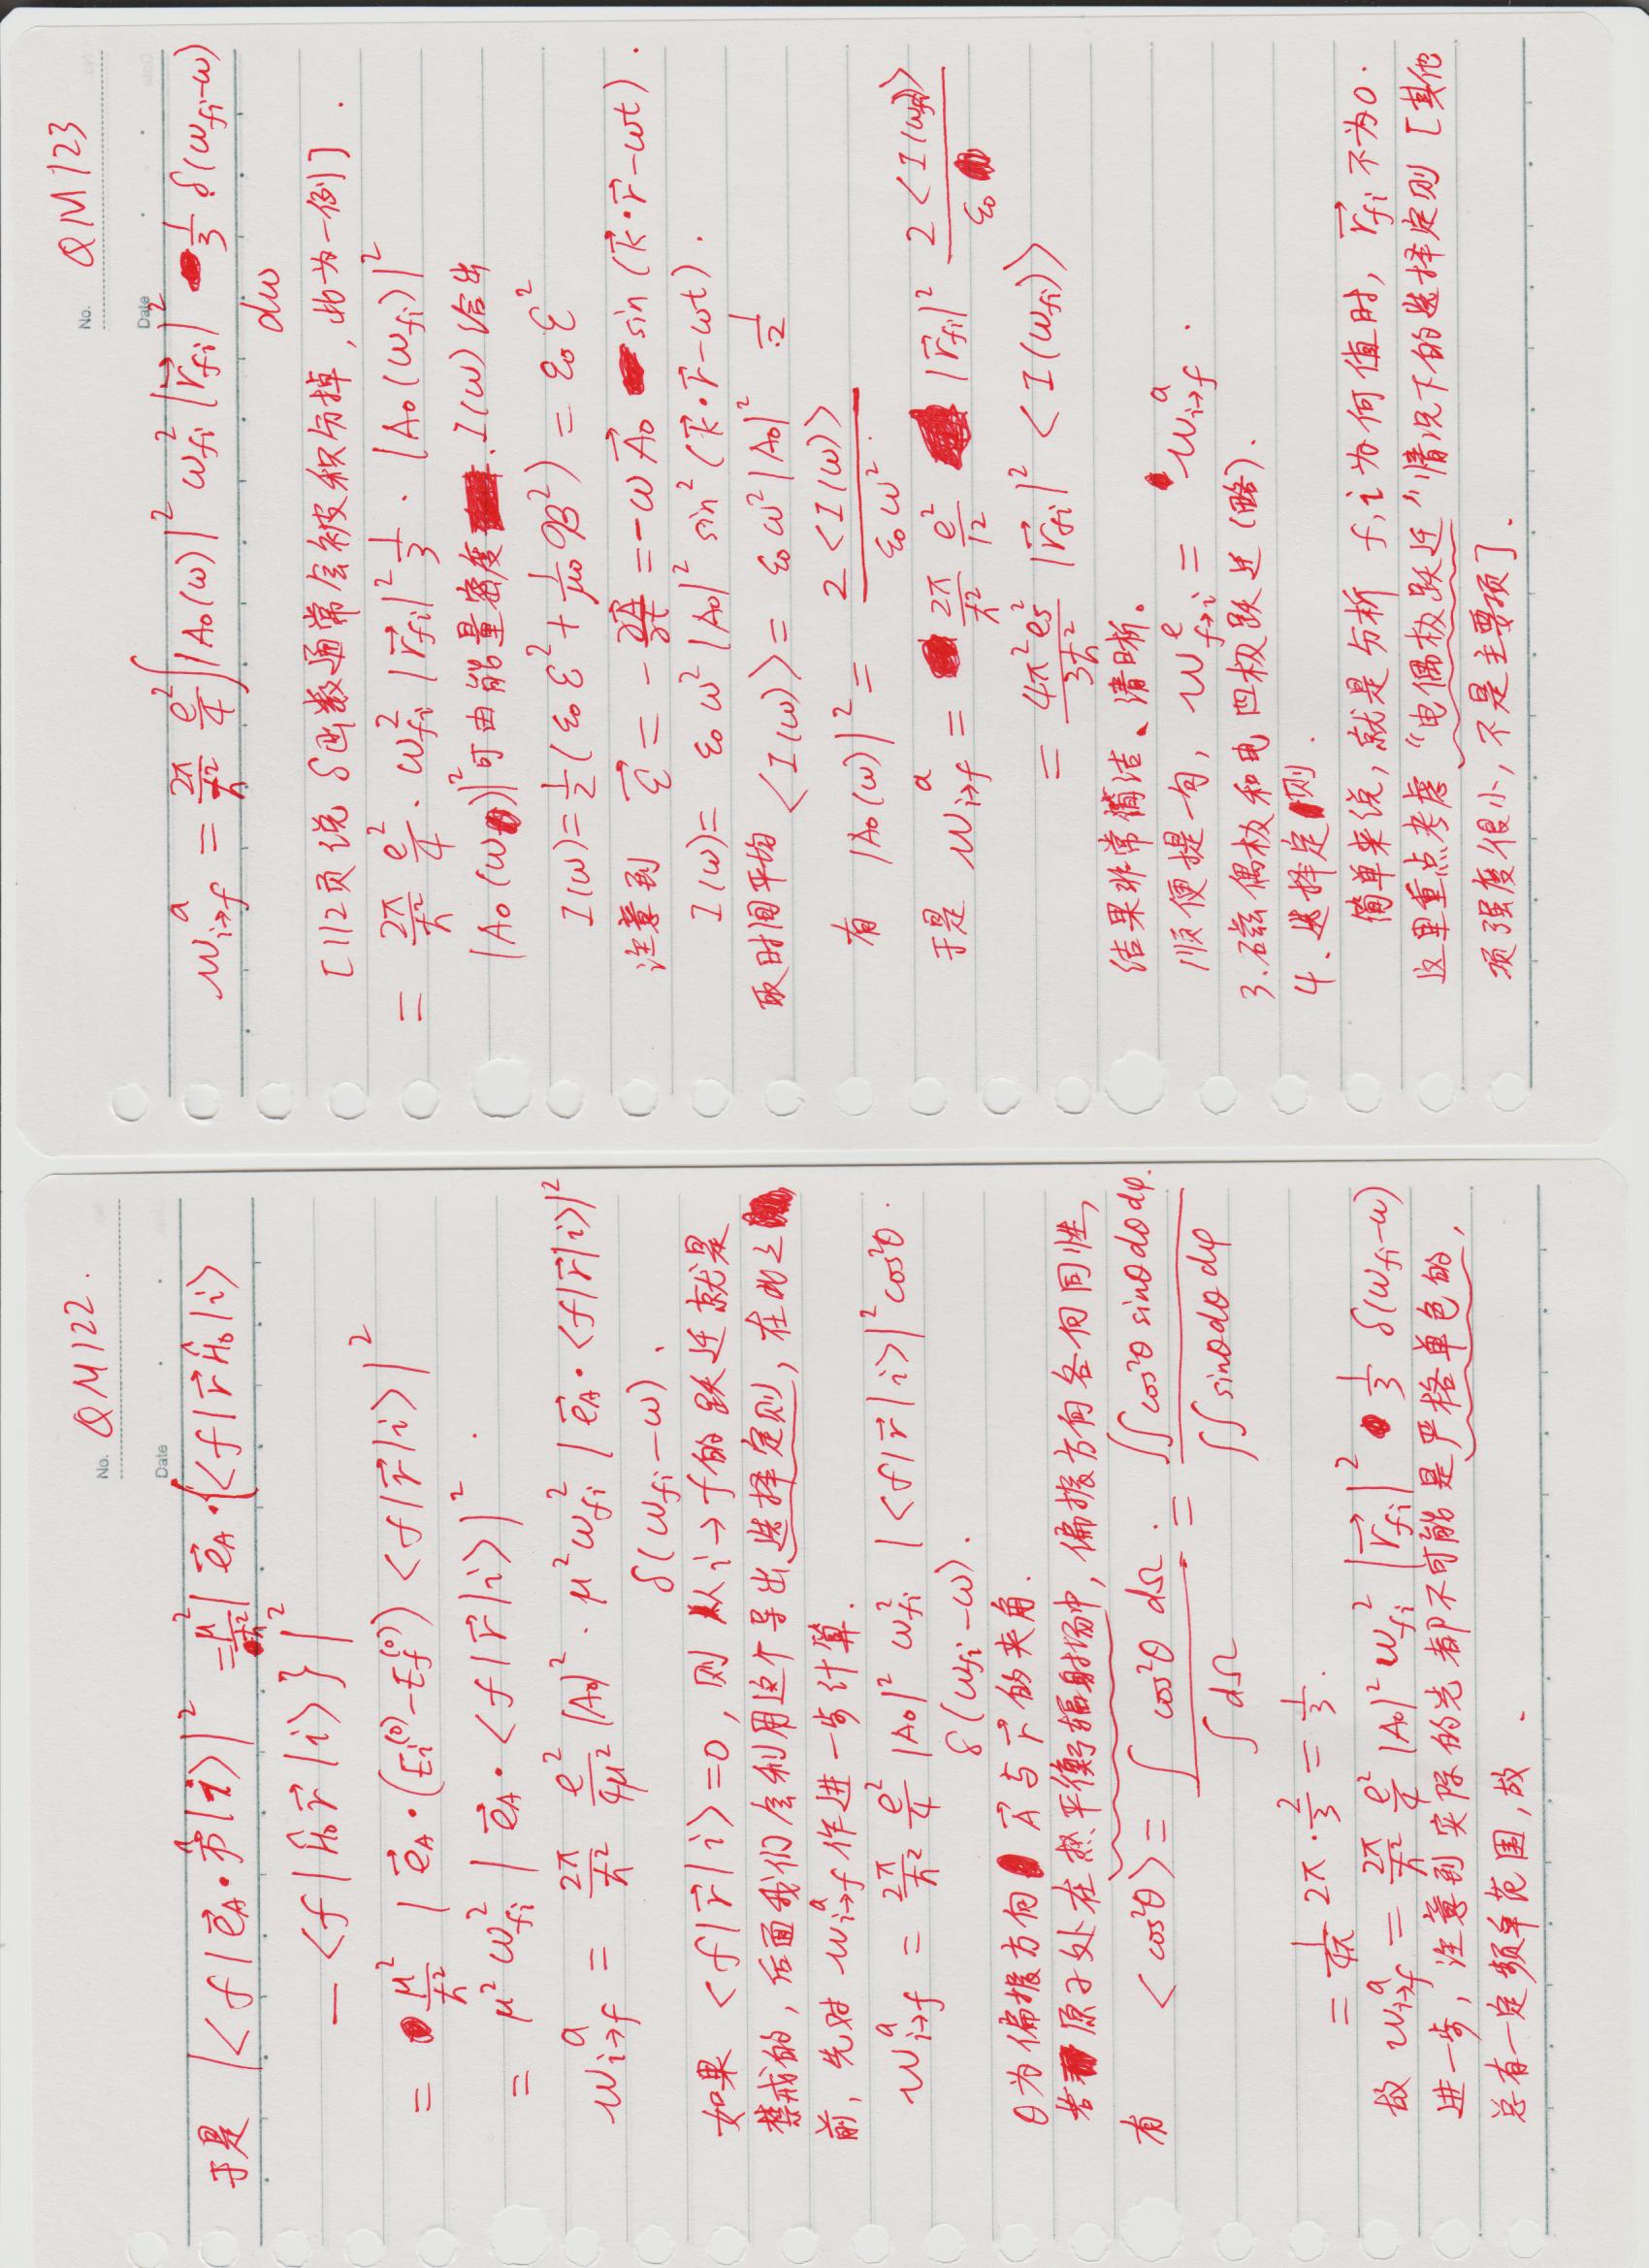 No. QM122.
Date
于是 |<f|e⃗_A·p̂⃗|i>|² = μ²/ħ² | e⃗_A·{<f|r⃗Ĥ₀|i>
— <f|Ĥ₀r⃗|i>}|²
= μ²/ħ² | e⃗_A·(E_i^(0)-E_f^(0)) <f|r⃗|i>|²
= μ² ω_fi² | e⃗_A·<f|r⃗|i>|².
w_{i→f}^a = 2π/ħ² e²/4μ² |A₀|²·μ²ω_fi² | e⃗_A·<f|r⃗|i>|²
δ(ω_fi-ω).
如果 <f|r⃗|i>=0, 则从i→f的跃迁就是
禁戒的, 后面我们会利用这个导出选择定则, 在此之
前, 先对 w_{i→f}^a 作进一步计算.
w_{i→f}^a = 2π/ħ² e²/4 |A₀|² ω_fi² |<f|r⃗|i>|² cos²θ·
δ(ω_fi-ω).
θ为偏振方向 A⃗与r⃗的夹角.
若原子处在热平衡辐射场中, 偏振方向各向同性,
有 <cos²θ> = ∫cos²θ dΩ / ∫dΩ = ∬cos²θ sinθdθdφ / ∬sinθdθdφ
= 1/4π 2π·2/3 = 1/3.
故 w_{i→f}^a = 2π/ħ² e²/4 |A₀|² ω_fi² |r⃗_fi|² 1/3 δ(ω_fi-ω)
进一步, 注意到实际的光都不可能是严格单色的,
总有一定频率范围, 故.
No. QM123
Date
w_{i→f}^a = 2π/ħ² e²/4 ∫|A₀(ω)|² ω_fi² |r⃗_fi|² 1/3 δ(ω_fi-ω)
dω
[112页说 δ函数通常会被积分掉, 此为一例].
= 2π/ħ² e²/4·ω_fi² |r⃗_fi|² 1/3·|A₀(ω_fi)|²
|A₀(ω)|²可由能量密度 I(ω) 给出
I(ω)=1/2(ε₀ℰ²+1/μ₀ ℬ²) = ε₀ℰ²
注意到 ℰ⃗ = -∂A⃗/∂t = -ωA⃗₀ sin(k⃗·r⃗-ωt).
I(ω)= ε₀ω²|A₀|² sin²(k⃗·r⃗-ωt).
取时间平均 <I(ω)> = ε₀ω²|A₀|² 1/2
有 |A₀(ω)|² = 2<I(ω)> / ε₀ω².
于是 w_{i→f}^a = 2π/ħ² e²/12 |r⃗_fi|² 2<I(ω_fi)> / ε₀
= 4π²e_s²/3ħ² |r⃗_fi|² <I(ω_fi)>
结果非常简洁、清晰。
顺便提一句, w_{f→i}^e = w_{i→f}^a.
3.磁偶极和电四极跃迁(略).
4.选择定则.
简单来说, 就是分析 f,i为何值时, r⃗_fi 不为0.
这里重点考虑“电偶极跃迁”情况下的选择定则 [其他
项强度很小, 不是主要项].